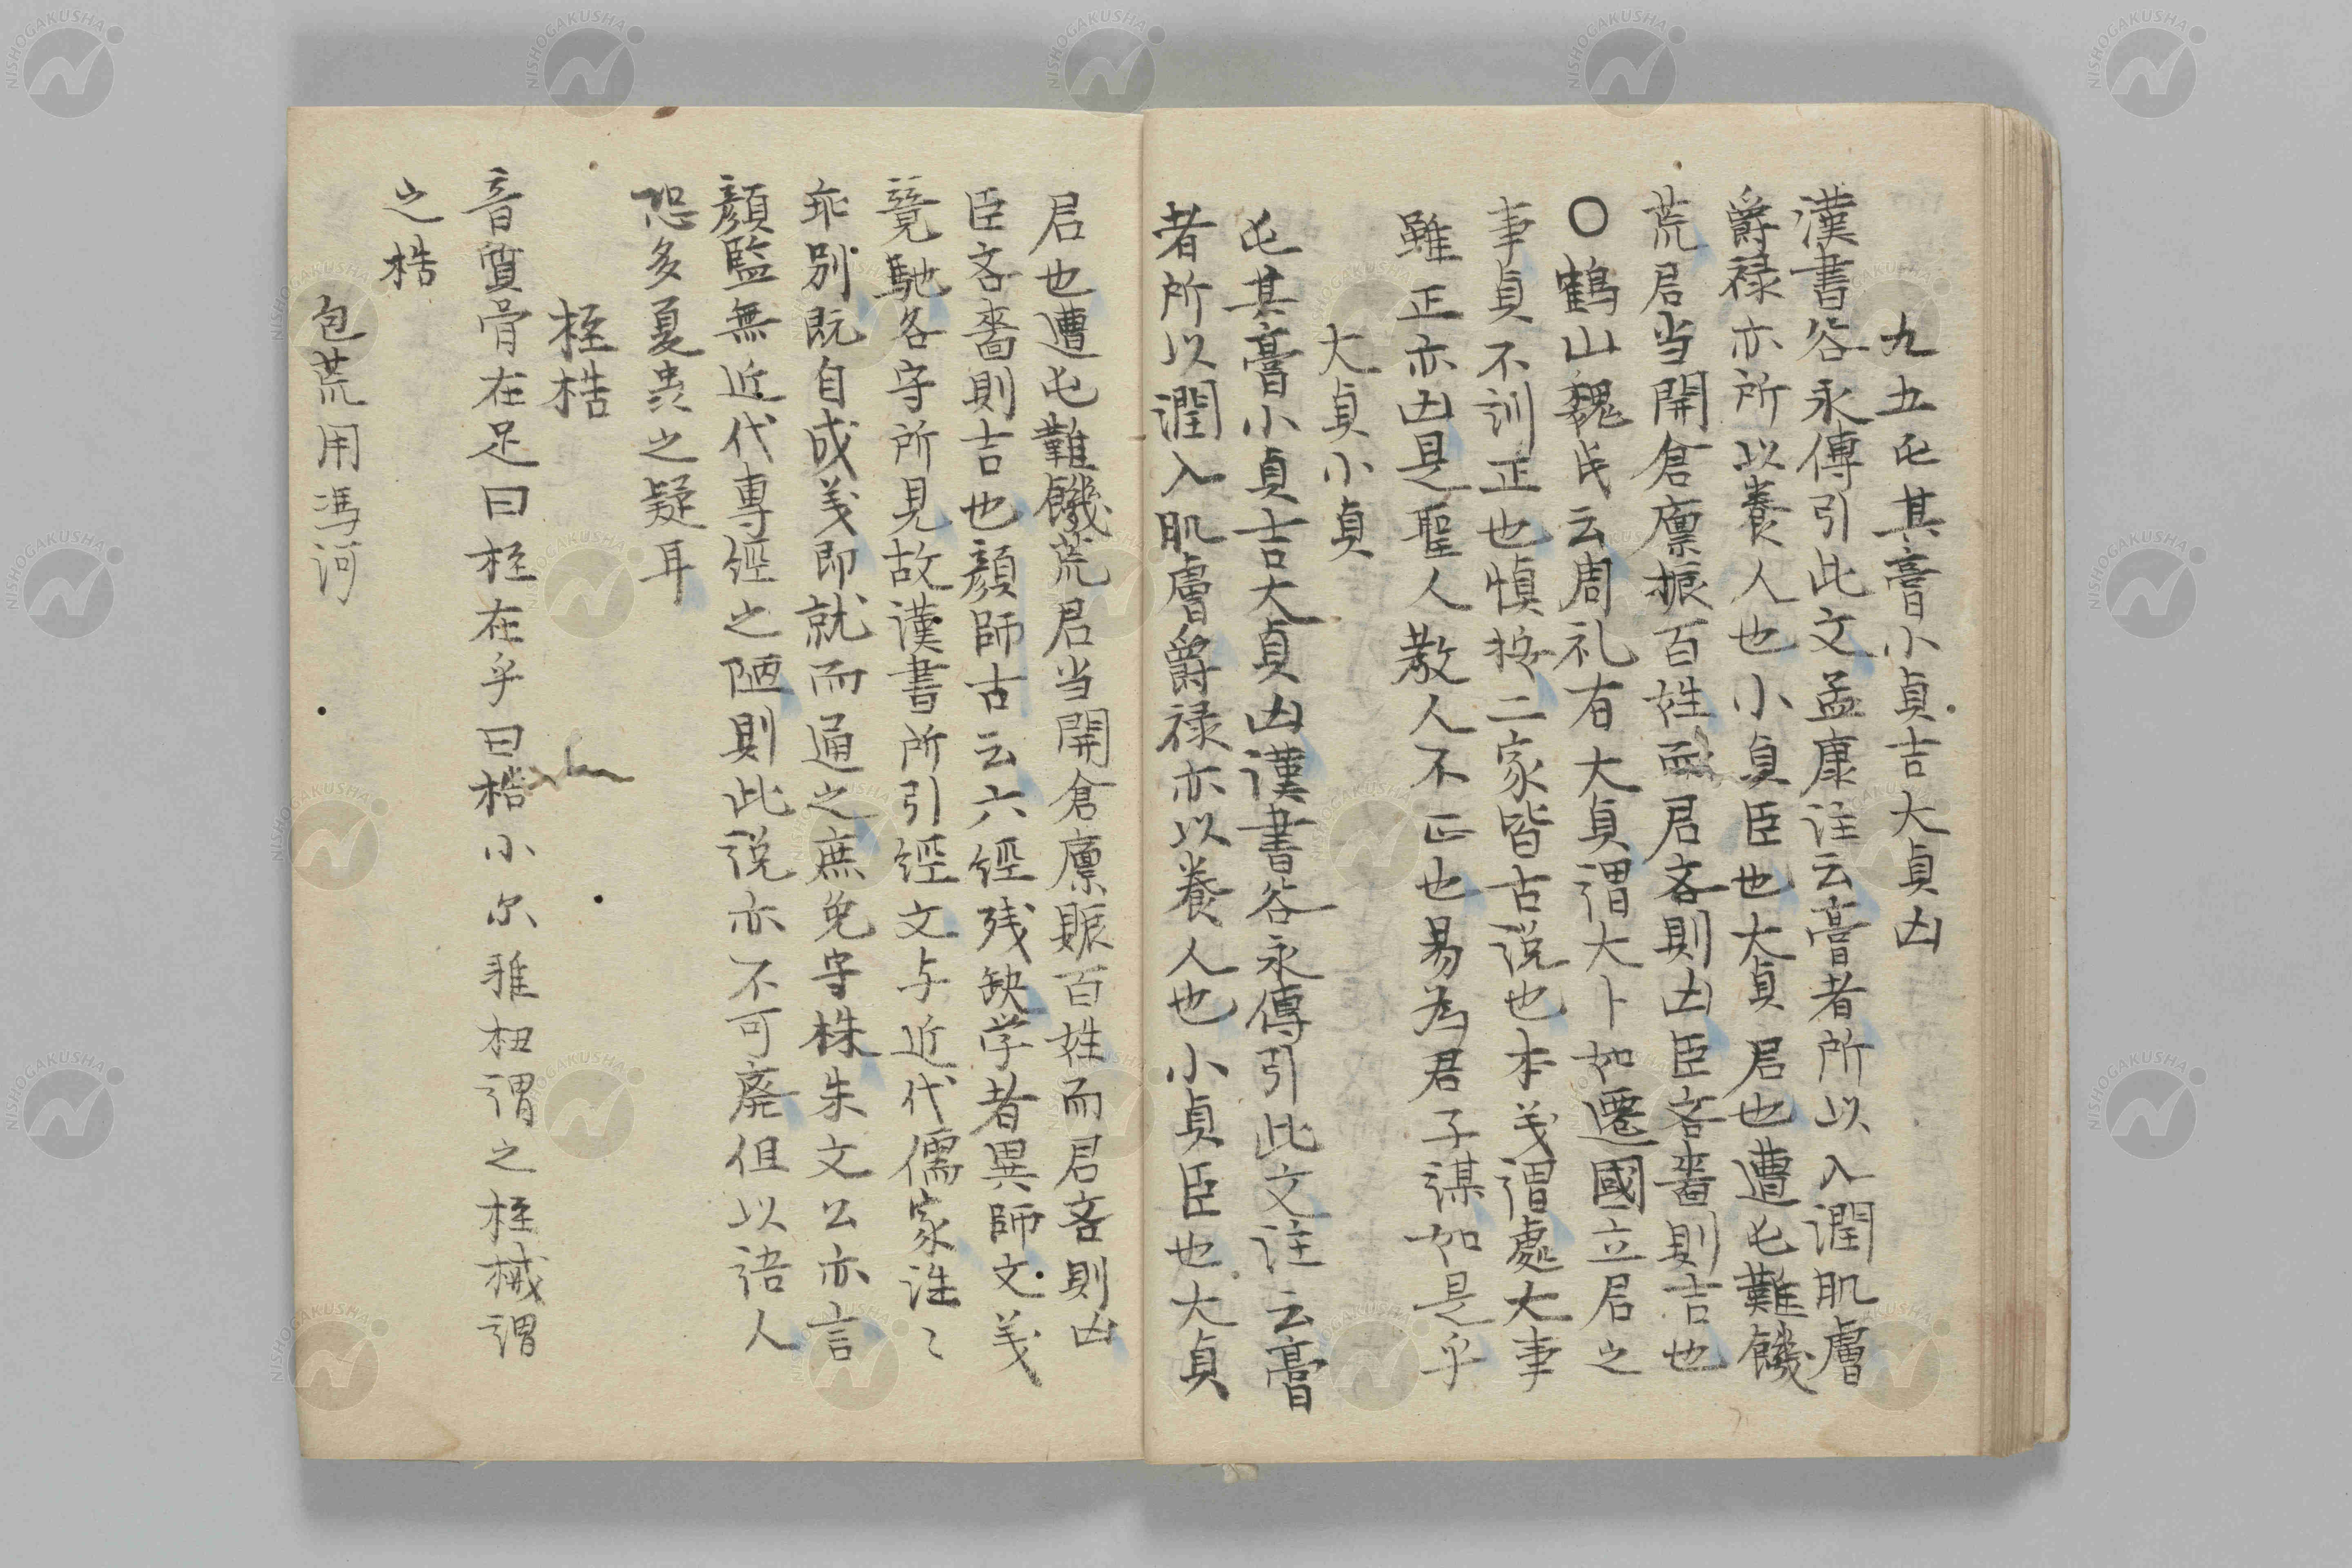 九五屯其膏小貞吉大貞凶
漢書谷永傳引此文孟康註云膏者所以入潤肌膚
爵禄亦所以養人也小貞臣也大貞君也遭屯難饑
荒君当開倉廩振百姓而君吝則凶臣吝嗇則吉也
〇鶴山魏氏云周礼有大貞謂大卜如遷國立君之
事貞不訓正也慎按二家皆古説也本義謂處大事
雖正亦凶是聖人教人不正也易為君子謀如是乎
大貞小貞
屯其膏小貞吉大貞凶漢書谷永傳引此文註云膏
者所以潤入肌膚爵禄亦以養人也小貞臣也大貞
君也遭屯難饑荒君当開倉廩賑百姓而君吝則凶
臣吝嗇則吉也顔師古云六經残缺学者異師文義
競馳各守所見故漢書所引經文与近代儒家誰〻
乖別既自成義即就而通之庶免守株朱文公亦言
顔監無近代專經之陋則此説亦不可廃但以語人
恐多夏虫之疑耳
桎梏
音質骨在足曰桎在手曰梏小尔雅杻謂之桎械謂
之梏
包荒用馮河
NISHOGAKUSHA